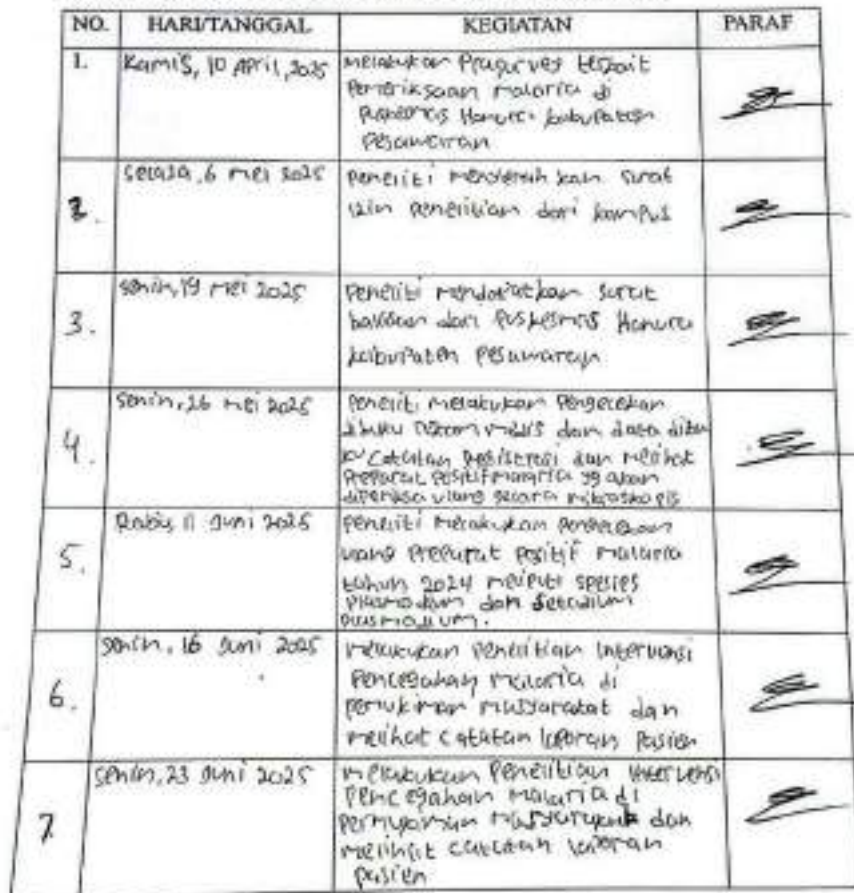 NO. HARI/TANGGAL KEGIATAN PARAF
1. Kamis, 10 April, 2025 Melakukan Prasurvey terkait
Pemeriksaan malaria di
Puskesmas Hanura kabupaten
Pesawaran
2. Selasa, 6 mei 2025 Peneliti menyerahkan surat
izin penelitian dari kampus
3. Senin, 19 mei 2025 Peneliti mendapatkan surat
balasan dari Puskesmas Hanura
kabupaten Pesawaran
4. Senin, 26 mei 2025 Peneliti melakukan Pengecekan
dibuku rekam medis dan data dibu
ku catatan Registrasi dan melihat
Preparat Positif malaria yg akan
diperiksa ulang secara mikroskopis
5. Rabu, 11 Juni 2025 Peneliti melakukan Pengecekan
ulang Preparat Positif malaria
tahun 2024 meliputi spesies
Plasmodium dan Stadium
Plasmodium.
6. Senin, 16 Juni 2025 Melakukan Penelitian Intervensi
Pencegahan malaria di
Permukiman masyarakat dan
melihat catatan laporan Pasien
7 Senin, 23 Juni 2025 Melakukan Penelitian Intervensi
Pencegahan malaria di
Permukiman masyarakat dan
melihat catatan laporan
Pasien